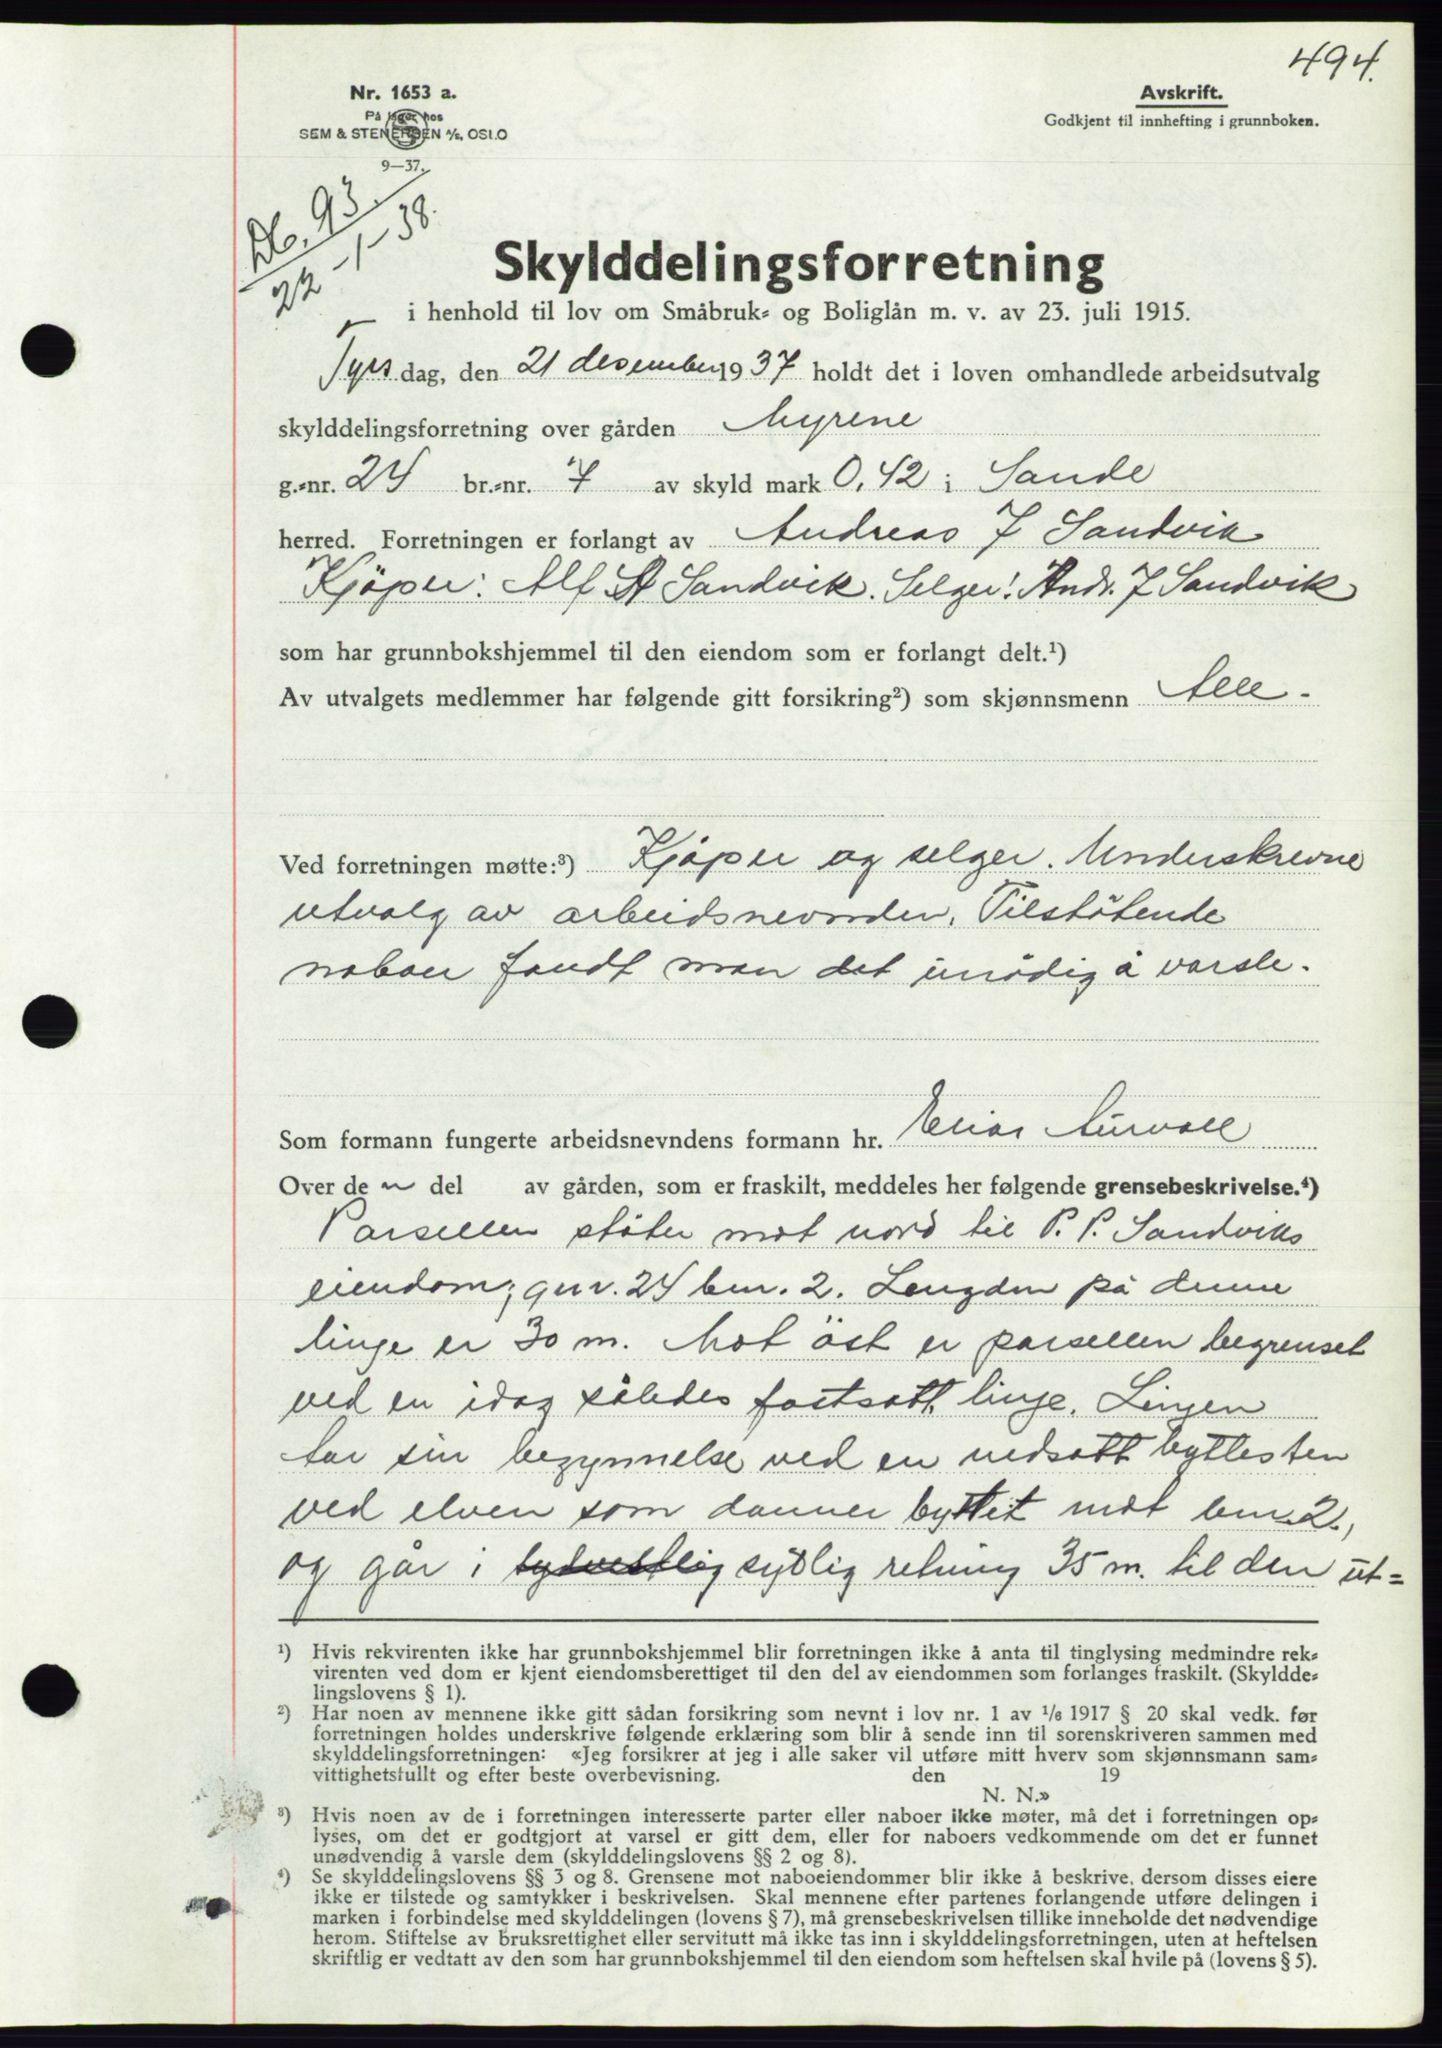 494.
Nr. 1653 a.
På lager hos
SEM & STENERSEN A/S, OSLO
9—37.
Avskrift.
Godkjent til innhefting i grunnboken.
Db. 93.
22-1-38.
Skylddelingsforretning
i henhold til lov om Småbruk- og Boliglån m. v. av 23. juli 1915.
Tyrsdag, den 21 desember 1937 holdt det i loven omhandlede arbeidsutvalg
skylddelingsforretning over gården Myrene
g.-nr. 24 br.-nr. 7 av skyld mark 0,42 i Sande
herred. Forretningen er forlangt av Andreas J Sandvik
Kjöper: Alf A Sandvik. Selger: Andr. J Sandvik
som har grunnbokshjemmel til den eiendom som er forlangt delt.¹)
Av utvalgets medlemmer har følgende gitt forsikring²) som skjønnsmenn Alle -
Ved forretningen møtte:³) Kjöper og selger. Underskrevne
utvalg av arbeidsnevnden. Tilstötende
naboer fandt man det unödig å varsle.
Som formann fungerte arbeidsnevndens formann hr. Elias Aurvoll
Over de n del av gården, som er fraskilt, meddeles her følgende grensebeskrivelse.⁴)
Parsellen stöter mot nord til P. P. Sandviks
eiendom; gnr. 24 bnr. 2. Lengden på denne
linje er 30 m. Mot öst er parsellen begrenset
ved en idag således fastsatt linje. Linjen
tar sin begynnelse ved en nedsatt byttesten
ved elven som danner byttet mot bnr. 2.,
og går i sydvestlig sydlig retning 35 m. til den ut=
¹) Hvis rekvirenten ikke har grunnbokshjemmel blir forretningen ikke å anta til tinglysing medmindre rek-
virenten ved dom er kjent eiendomsberettiget til den del av eiendommen som forlanges fraskilt. (Skyldde-
lingslovens § 1).
²) Har noen av mennene ikke gitt sådan forsikring som nevnt i lov nr. 1 av 1/6 1917 § 20 skal vedk. før
forretningen holdes underskrive følgende erklæring som blir å sende inn til sorenskriveren sammen med
skylddelingsforretningen: «Jeg forsikrer at jeg i alle saker vil utføre mitt hverv som skjønnsmann sam-
vittighetsfullt og efter beste overbevisning. den 19
N. N.»
³) Hvis noen av de i forretningen interesserte parter eller naboer ikke møter, må det i forretningen op-
lyses, om det er godtgjort at varsel er gitt dem, eller for naboers vedkommende om det er funnet
unødvendig å varsle dem (skylddelingslovens §§ 2 og 8).
⁴) Se skylddelingslovens §§ 3 og 8. Grensene mot naboeiendommer blir ikke å beskrive, dersom disses eiere
ikke er tilstede og samtykker i beskrivelsen. Skal mennene efter partenes forlangende utføre delingen i
marken i forbindelse med skylddelingen (lovens § 7), må grensebeskrivelsen tillike inneholde det nødvendige
herom. Stiftelse av bruksrettighet eller servitutt må ikke tas inn i skylddelingsforretningen, uten at heftelsen
skriftlig er vedtatt av den som har grunnbokshjemmel til den eiendom som heftelsen skal hvile på (lovens § 5).